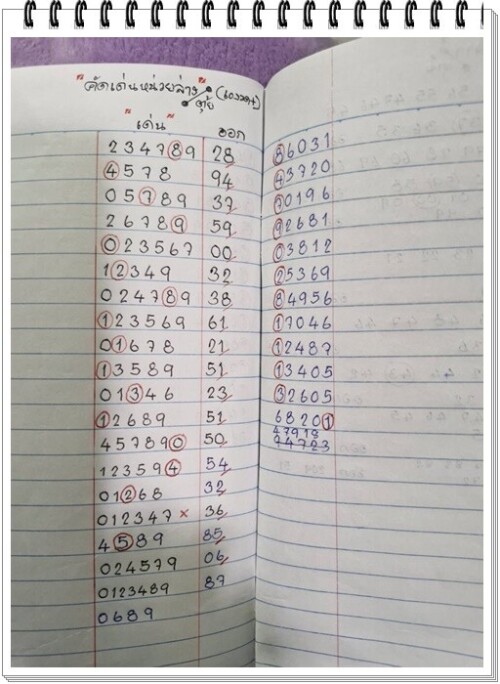 "คัดเด่นหน่วยล่าง"
"เด่น" ออก
234789 28
4578 94
05789 37
26789 59
023567 00
12349 32
024789 38
123569 61
01678 21
13589 51
01346 23
12689 51
457890 50
123594 54
01268 32
012347 × 36
4589 85
024579 06
0123489 87
0689
86031
43720
70196
92681
03812
25369
84956
17046
12487
13405
32605
68201
47918
94723